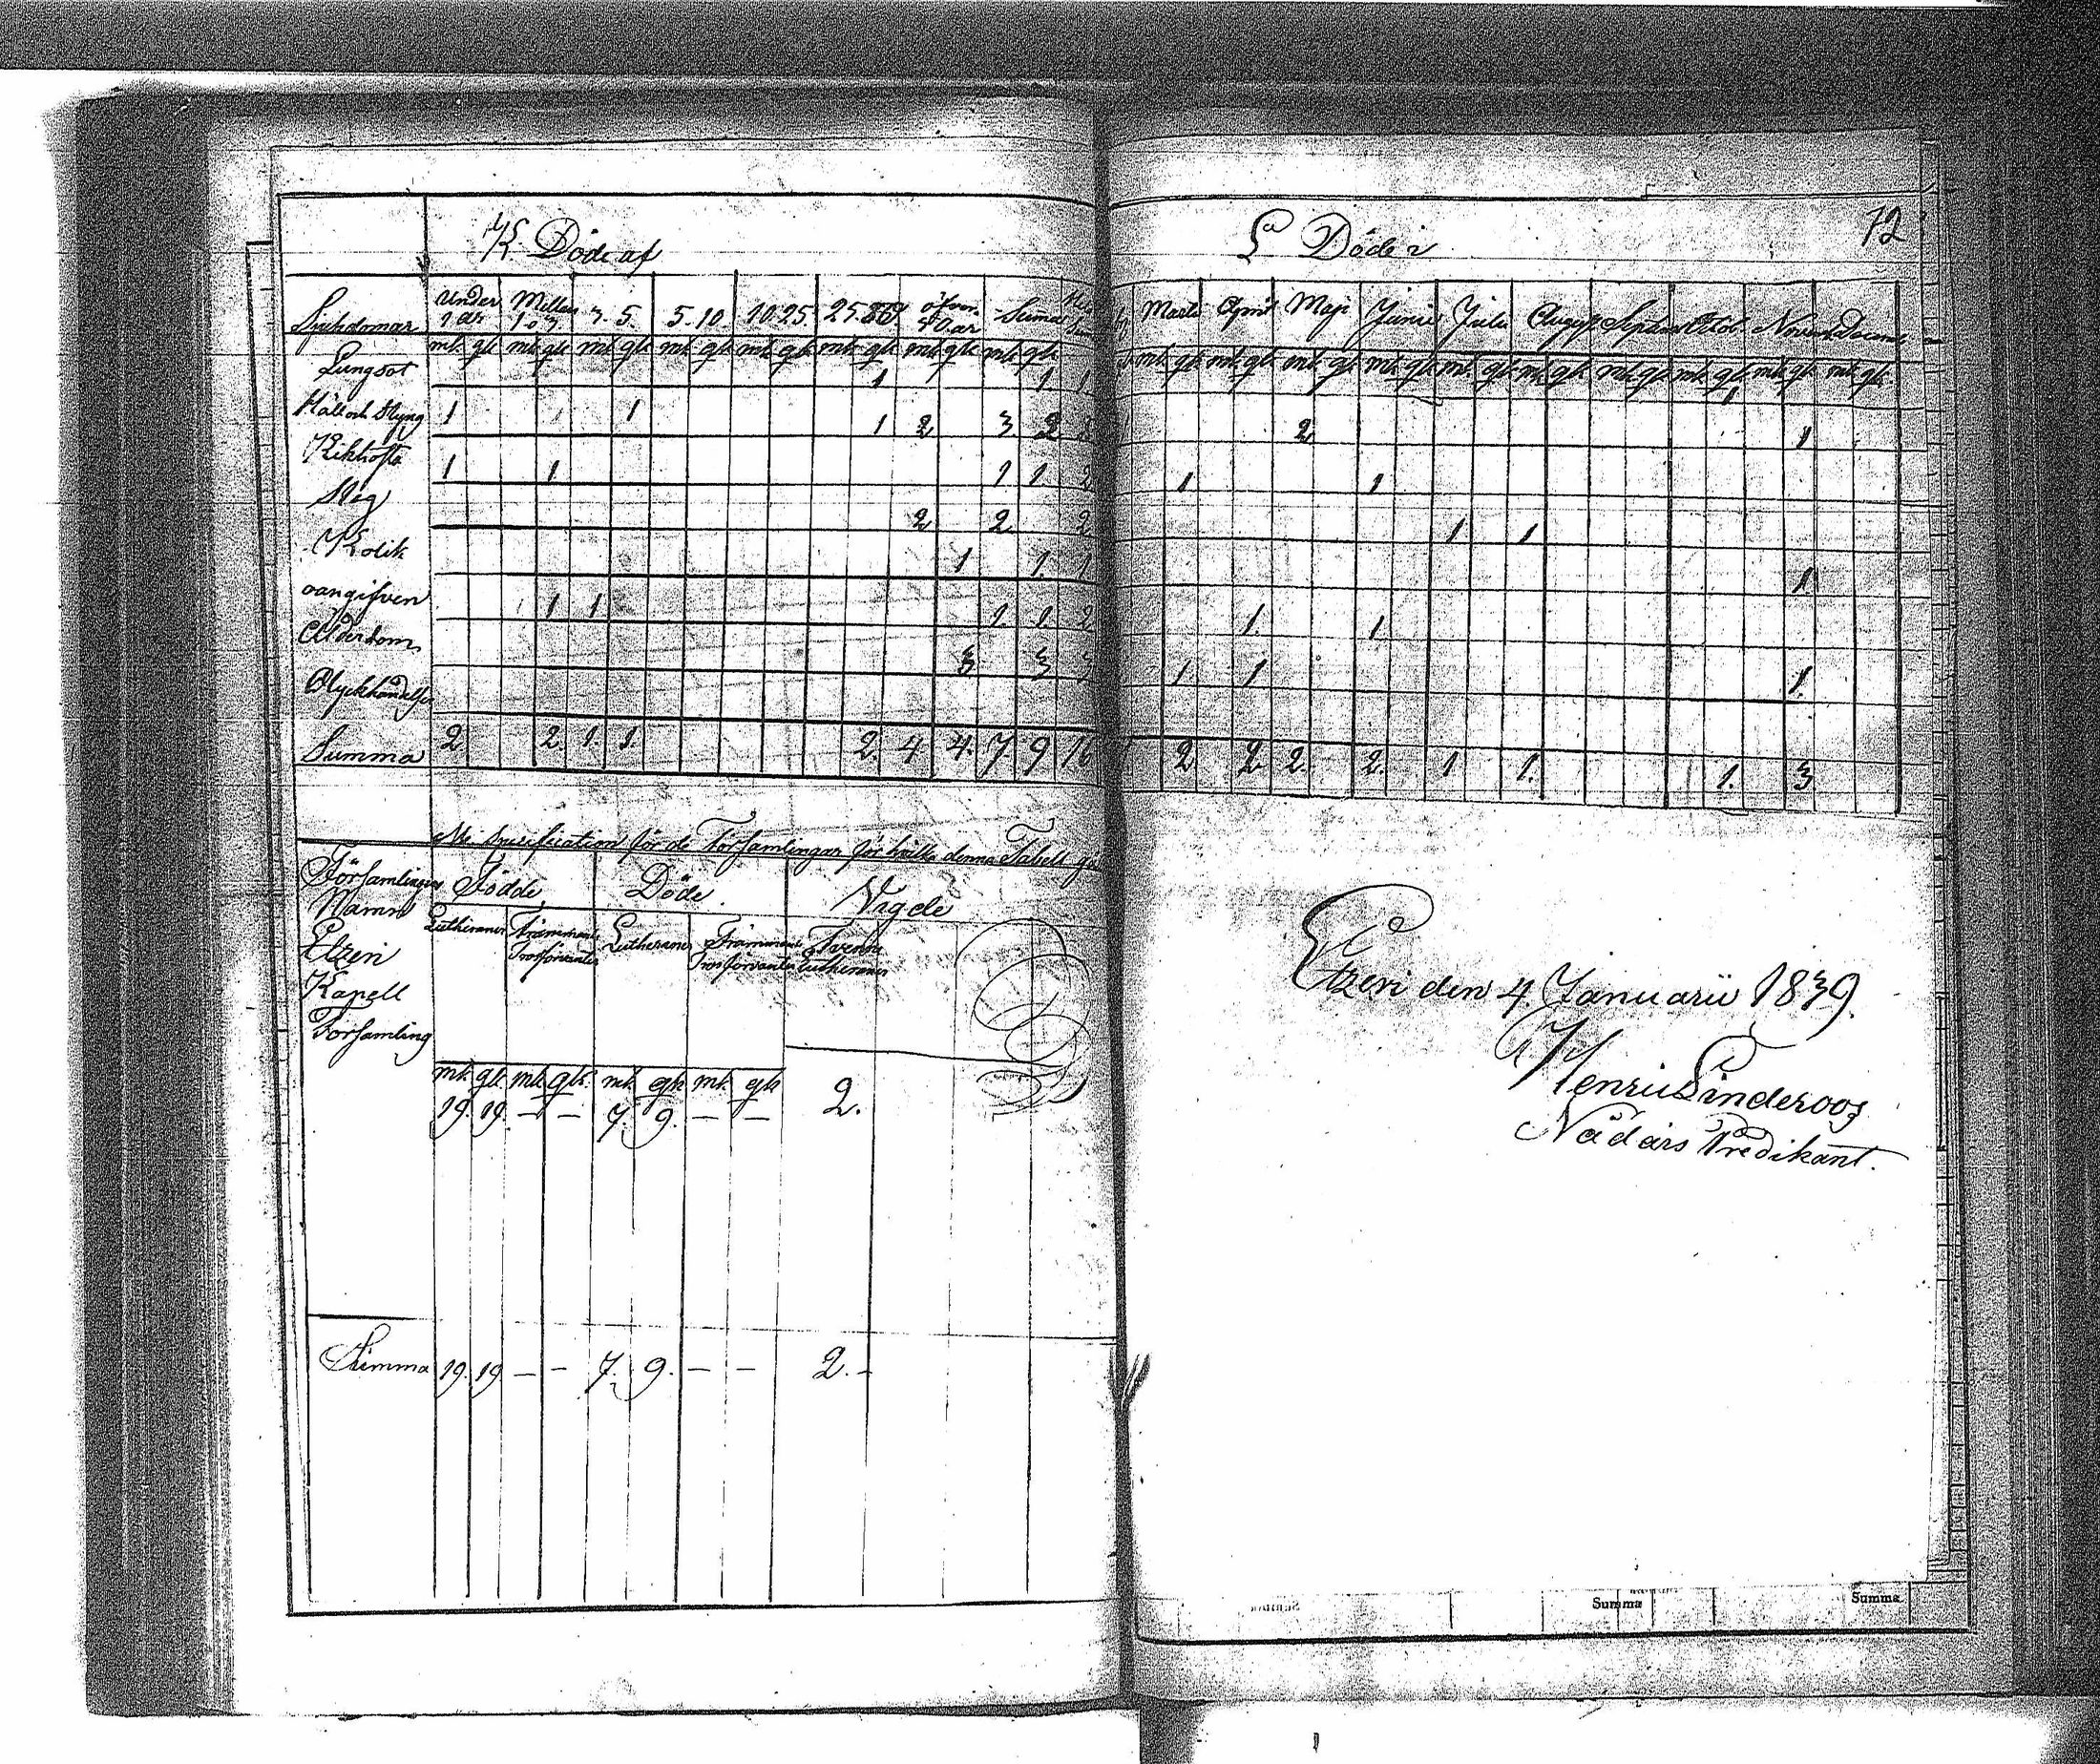 K. Döde af
Sjukdomar Under 1 år Mellan 1 o 3 3. 5. 5. 10. 10. 25. 25. 50 öfver 50 år Suma
mk. qk. mk. qk. mk. qk. mk. qk. mk. qk. mk. qk. mk. qk. mk. qk.
Lungsot 1 1 1
Håll och Styng 1 1 1 2 3 2
Kikhosta 1 1 1 1 2
Slag 2 2 2
Kolik 1 1. 1
oangifven 1 1 1 1 2
Ålderdom 3 3 3
Olyckhändelse
Summa 2. 2. 1. 1. 2. 4 4. 7 9 16
specification för de Församlingar för hvilka denna Tabell
Församlingens Namn Födde Döde. Vigde
Lutheraner Främmande Trosförvanter Lutheraner Främmande Trosförvanter Tvenne Lutheraner
Etzeri
Kapell
Församling
mk. qk. mk. qk. mk. qk mk. qk
19. 19. — — 7. 9. — — 2.
Summa 19. 19 — — 7. 9. — — 2. -
L Döde i
72
Martii April Maji Junii Julii August September Octob. Novemb. Decemb
mk. qk. mk. qk. mk. qk. mk. qk. mk. qk. mk. qk. mk. qk. mk. qk. mk. qk. mk. qk.
1
2 1
1 1
1 1
1.
1. 1
1 1 1.
2 2 2. 2. 1 1. 1. 3
Etzeri den 4. Januarii 1839.
Henric Linderoos
Nådårs Predikant.
Summa
Summa